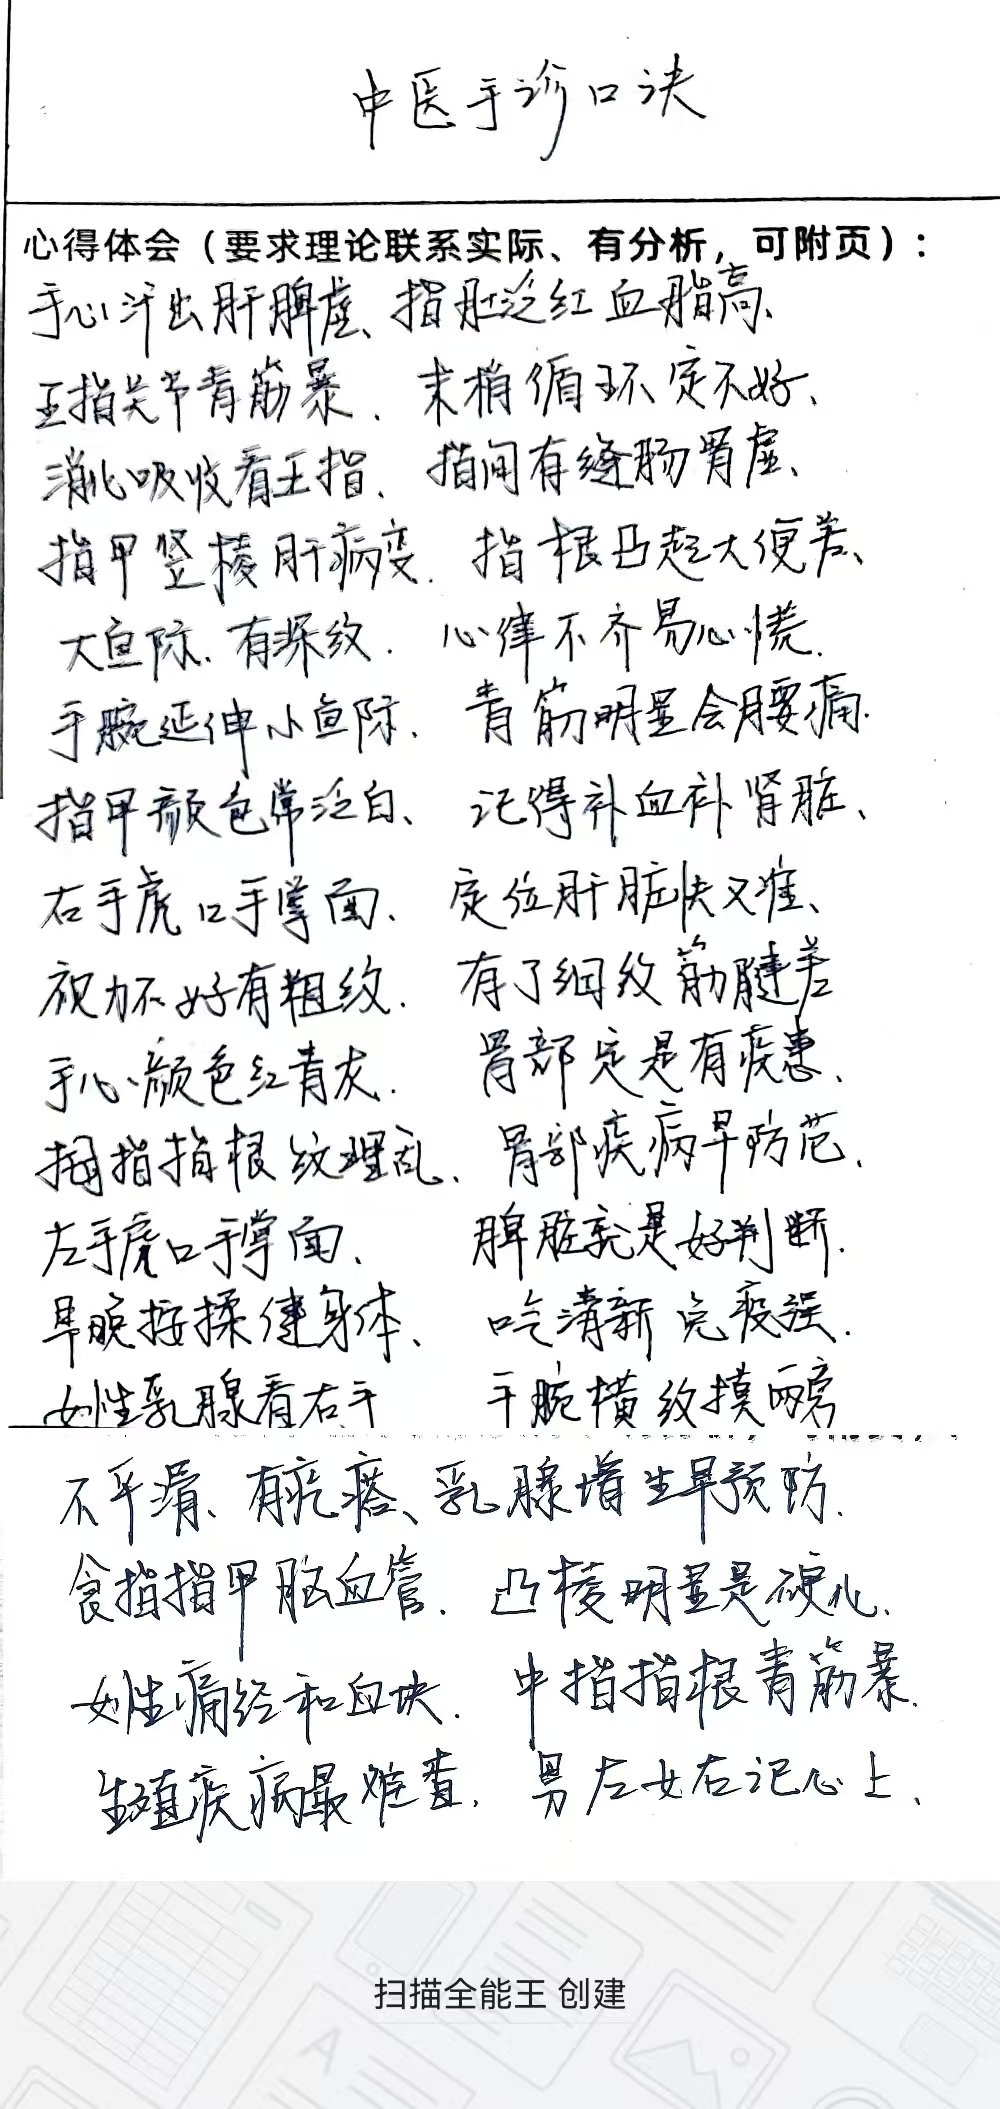 中医手诊口诀
心得体会（要求理论联系实际、有分析，可附页）：
手心汗出肝脾虚、指肚泛红血脂高、
五指关节青筋暴、末梢循环定不好、
消化吸收看五指、指间有缝肠肾虚、
指甲竖棱肝病变、指根凸起大便差、
大鱼际、有深纹、心律不齐易心慌、
手腕延伸小鱼际、青筋明显会腰痛、
指甲颜色常泛白、记得补血补肾脏、
右手虎口手掌面、定位肝脏快又准、
视力不好有粗纹、有了细纹筋腱差
手心颜色红青灰、胃部定是有疾患、
拇指指根纹理乱、胃部疾病早防范、
左手虎口手掌面、脾脏就是好判断、
早晚按揉健身体、吃清新免疫强、
女性乳腺看右手 手腕横纹摸两旁
不平滑、有疙瘩、乳腺增生早预防、
食指指甲脑血管、凸棱明显是硬化、
女性痛经和血块、中指指根青筋暴、
生殖疾病最难查、男左女右记心上、
扫描全能王 创建